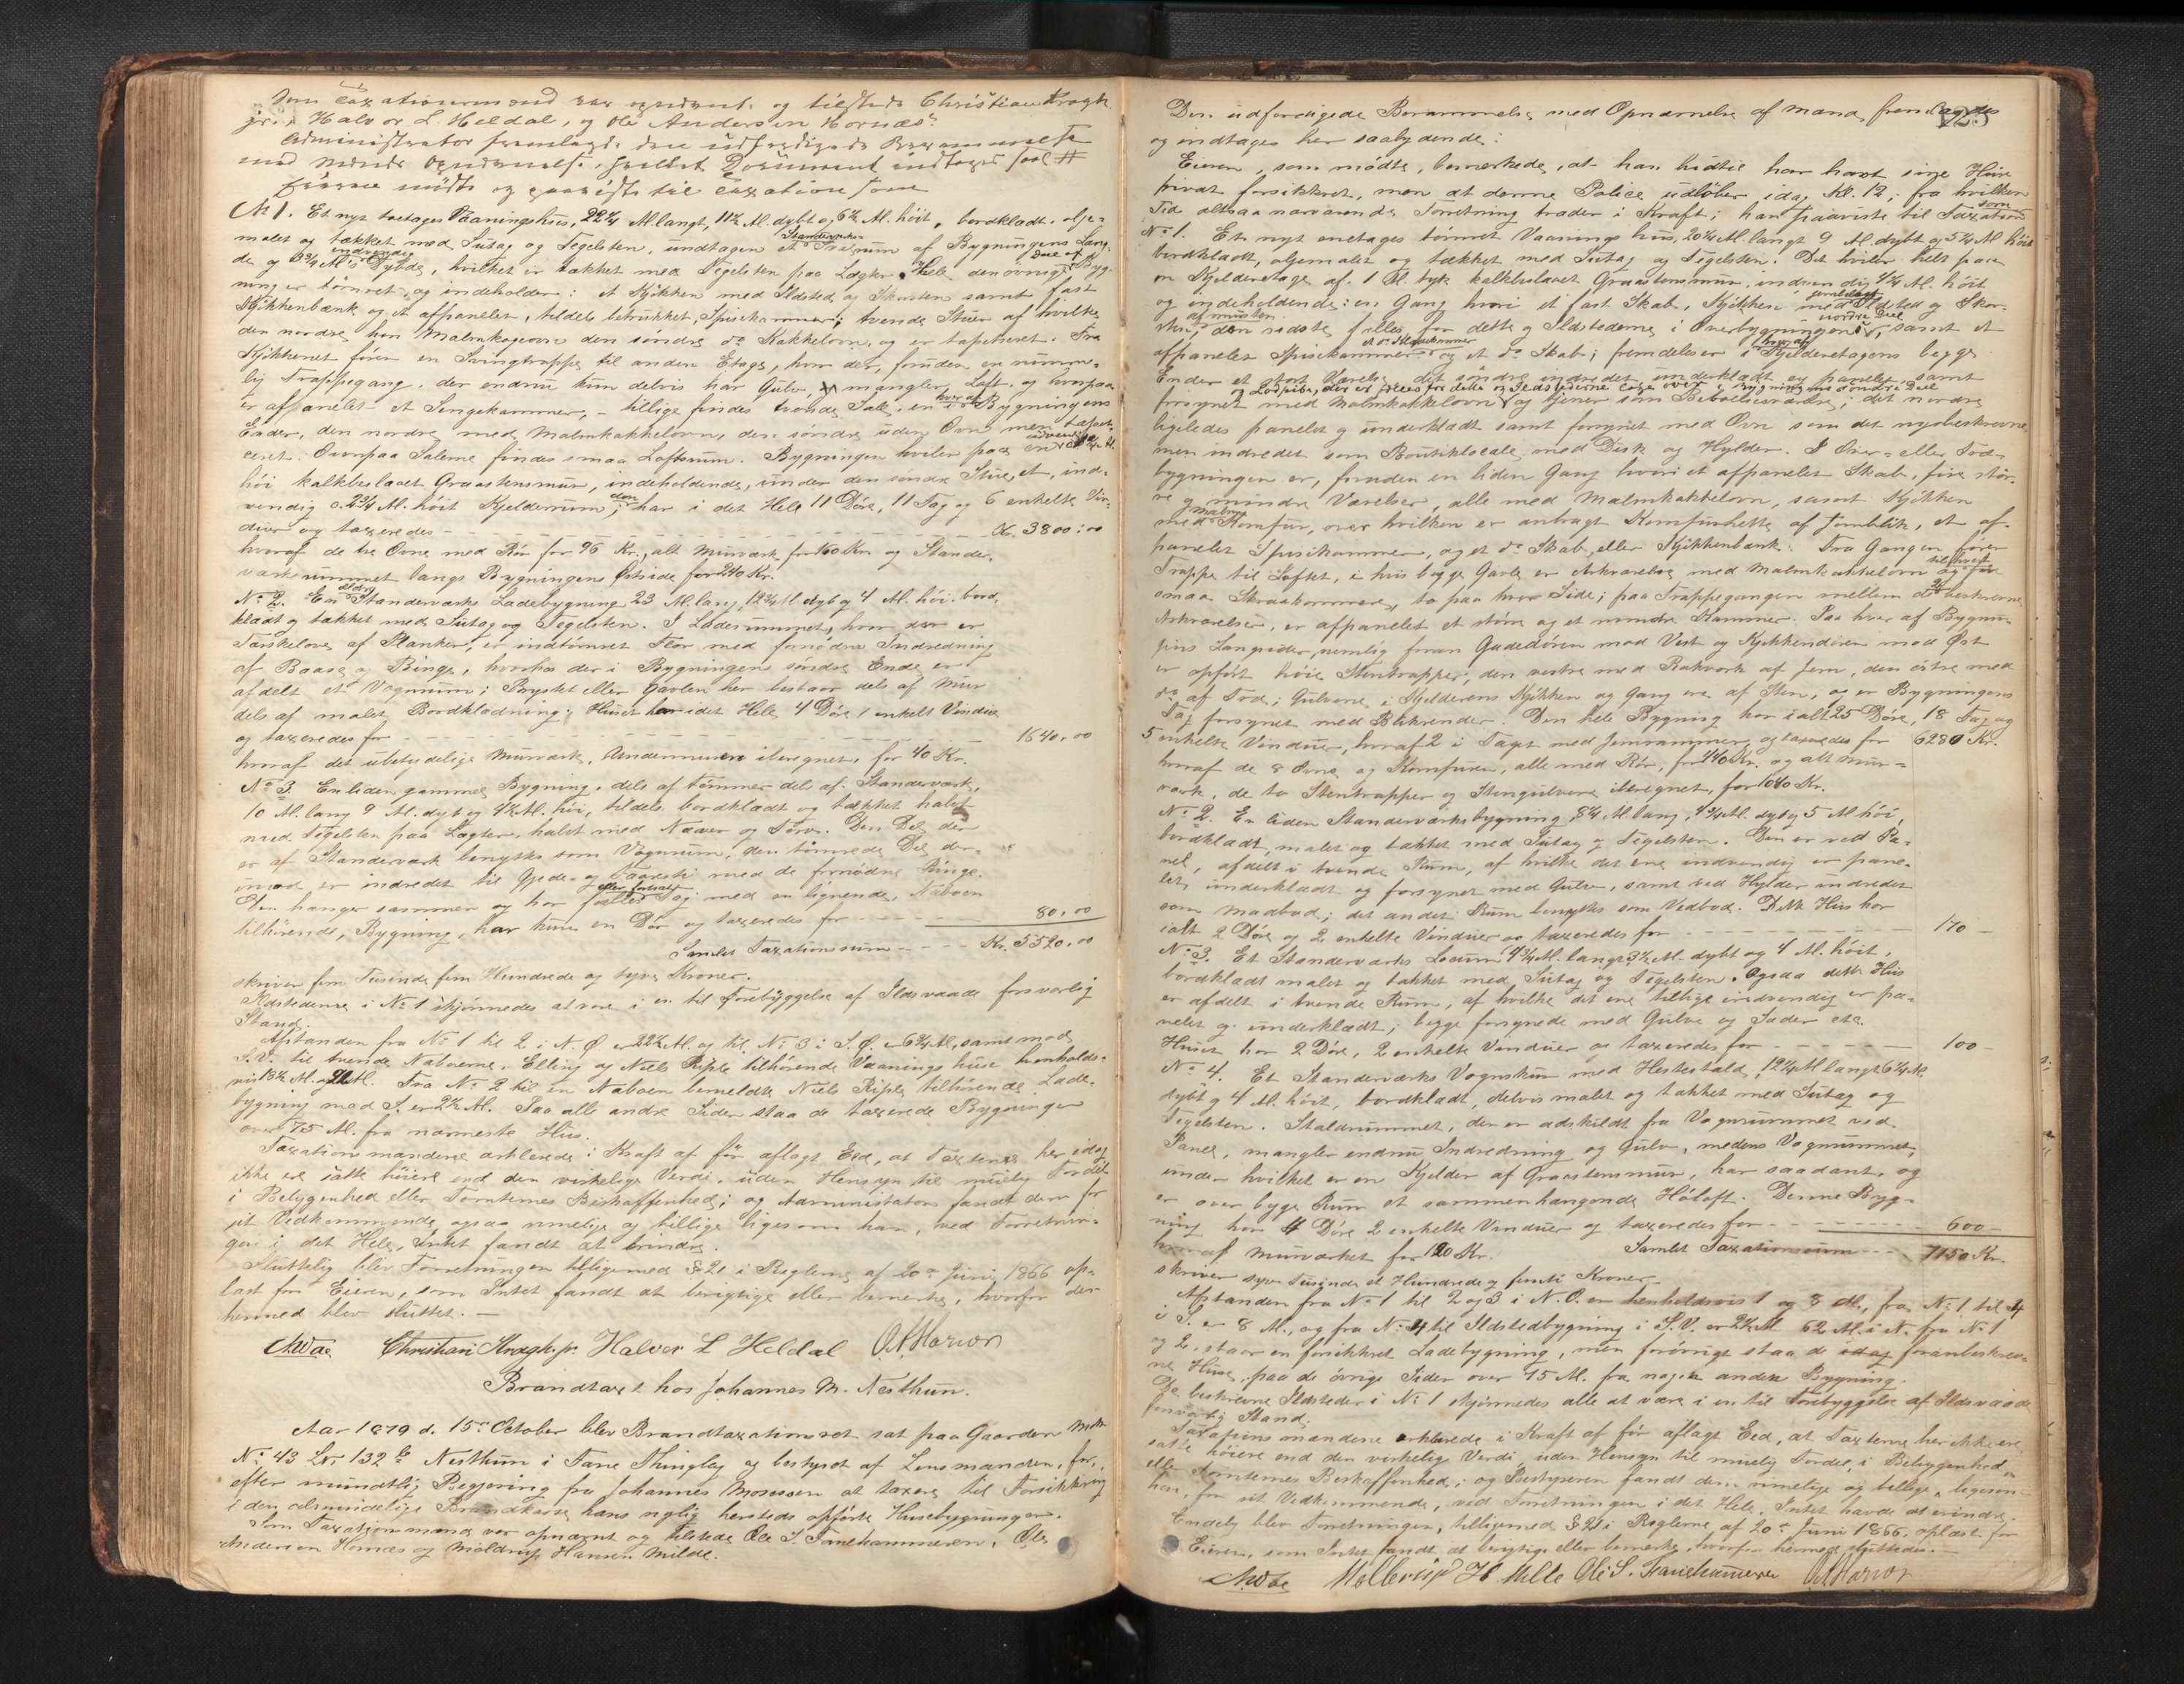 Som Taxationsmænd var opnævnt og tilstede Christian Kragh
jr., Halvor L. Heldal, og Ole Andersen Hornæs.
Administrator fremlagde den udfærdigede Berammelse
med Mænds Opnævnelse, hvilket Document indtages saal. #
Eieren mødte og paaviste til Taxation som
No 1. Et nyt toetages Vaaningshus, 22¼ Al. langt, 11½ Al. dybt og 6½ Al. höit, bordklædt, olje-
malet og tækket med Sutag og Tegelsten, undtagen et Standerværks- af Bygningens Læng-
de og 3¾ Al.'s indvendig Dybde, hvilket er tækket med Tegelsten paa Lægter. Hele den övrige Deel af Byg-
ning er tömret, og indeholder: et Kjökken med Ildsted og Skorsten samt fast
Kjökkenbænk og et afpanelet, tildels betrukket, Spisekammer; tvende Stuer af hvilke
den nordre har Malmkogeovn den söndre do Kakkelovn, og er tapetseret. Fra
Kjökkenet förer en Svingtrappe til anden Etage, hvor der, foruden en rumme-
lig Trappegang, der endnu kun delvis har Gulv, mangler Loft, og hvorpaa
er afpanelet et Sengekammer, - tillige findes tvende Sale, en i hver af Bygningens
Ender, den nordre med Malmkakkelovn, den söndre uden Ovn men tapet-
ceret. Ovenpaa Salene findes smaa Loftsrum. Bygningen hviler paa en udvendig Al.
höi kalkbeslaaet Graastensmur, indeholdende, under den söndre Stue, et, ind-
vendig c. 2¾ Al. höit Kjelderrum; den har i det Hele 11 Döre, 11 Fag og 6 enkelte Vin-
duer og taxeredes - - - Kr. 3800:00
hvoraf de tre Ovne med Rör for 96 Kr., alt Murværk for 160 Kr. og Stander-
værksrummet langs Bygningens Östside for 240 Kr.
No 2. En ældre Standerværks Ladebygning 23 Al. lang, 12¾ Al. dyb og 4 Al. höi, bord-
klædt og tækket med Sutag og Tegelsten. I Laderummet, hvor der er
Tærskelove af Planker, er indtömret Flor med fornöden Indredning
af Baase og Binge, hvorhos der i Bygningens söndre Ende er
afdelt et Vognrum; Brystet eller Gavlen her bestaar dels af Mur
dels af malet Bordklædning; Huset har i det Hele 4 Döre 1 enkelt Vindue
og taxeredes for - - - 1640,00
hvoraf det ubetydelige Murværk, Undermuren iberegnet, for 40 Kr.
No 3. En liden gammel Bygning, dels af tömmer dels af Standerværk,
10 Al. lang 9 Al. dyb og 4½ Al. höi, tildels bordklædt og tækket halvt
med Tegelsten paa Lægter, halvt med Næver og Törv. Den Del, der
er af Standerværk benyttes som Vognrum, den tömrede Del der-
imod er indredet til Gjede- og Faarefjös med de fornödne Binge.
Den hænger sammen og har fælles eller fortsat Tag med en lignende, Naboen
tilhörende, Bygning, har kun en Dör og taxeredes for - - - 80,00
Samlet Taxationssum - - - Kr. 5520,00
skriver fem Tusinde fem Hundrede og tyve Kroner.
Ildstederne i No 1 skjönnedes at være i en til Forebyggelse af Ildsvaade forsvarlig
Stand.
Afstanden fra No 1 til 2 i N.Ö er 22¾ Al. og til No 3 i S.Ö. er 6¾ Al, samt mod
S.V. til tvende Naboerne, Elling og Niels Riple tilhörende Vaaningshuse henholds-
vis 13¾ Al. og 21 Al. Fra No 2 til en Naboen bemeldte Niels Riple tilhörende Lade-
bygning mod S. er 2½ Al. Paa alle andre Sider staa de taxerede Bygninger
over 75 Al. fra nærmeste Hus.
Taxationsmændene erklærede i Kraft af för aflagt Eed, at Taxterne her idag
ikke ere satte höiere end den virkelige Verdi, uden Hensyn til muelig Fordel
i Beliggenhed eller Tomternes Beskaffenhed; og Administrator fandt dem for
sit Vedkommende, ogsaa rimelige og billige ligesom han, ved Forretnin-
gen i det Hele, Intet fandt at erindre.
Sluttelig blev Forretningen tilligemed § 21 i Reglerne af 20de Juni 1866 op-
læst for Eieren, som Intet fandt at berigtige eller bemærke, hvorfor den
hermed blev sluttet. -
Christian Kragh jr. Halvor L Heldal
Brandtaxt hos Johannes M. Nesthun.
Aar 1879 d. 15de October blev Brandtaxationsret sat paa Gaarden Matr.
No 43 LNo 132 b Nesthun i Fane Thinglag og bestyret af Lensmanden, for,
efter mundtlig Begjæring fra Johannes Monssen at taxere til Forsikkring
i den almindelige Brandkasse hans nylig hersteds opförte Husebygninger.
Som Taxationsmænd var opnævnt og tilstede Ole S. Fanehammeren, Ole
Andersen Hornæs og Möldrup Hansen Milde.
125
Den udfærdigede Berammelse med Opnævnelse af Mænd fremlagdes
og indtages her saalydende:
Eieren, som mödte, bemærkede, at han hidtil har havt sine Huse
privat forsikkret, men at denne Police udlöber idag Kl. 12; fra hvilken
Tid altsaa nærværende Forretning træder i Kraft; han paaviste til Taxation som
No 1. Et nyt enetages tömret Vaaningshus, 20¾ Al. langt 9 Al. dybt og 5¾ Al höit
bordklædt, oljemalet og tækket med Sutag og Tegelsten. Det hviler helt paa
en Kjelderetage af 1 Al. tyk kalkbeslaaet Graastensmur, indvendig 4¼ Al. höit
og indeholdende: en Gang hvori et fast Skab, Kjökken med Ildsted og Skor-
sten, af mursten den sidste fælles for dette og Ildstederne i Overbygningens nordre Deel, samt et
afpanelet Spisekammer og et do Skab; fremdeles er i Kjelderetagens begge
Ender et stort Værelse, det söndre indredet underklædt og panelet samt
forsynet med Malmkakkelovn og Lödpibe, der er fælles for dette og Ildstederne lige over i Bygningens söndre Deel og tjener som Beboelsesværelse; det nordre
ligeledes panelet og underklædt samt forsynet med Ovn som det nysbeskrevne
men indredet som Boutiklocale med Disk og Hylder. I Over- eller Træ-
bygningen er, foruden en liden Gang hvori et afpanelet Skab, fire stör-
re og mindre Værelser, alle med Malmkakkelovn, samt Kjökken
med Malm Komfur, over hvilken er anbragt Komfurhette af Jernblik, et af-
panelet Spisekammer, og et do Skab, eller Kjökkenbænk. Fra Gangen förer
Trappe til Loftet, i hvis begge Gavle er Arkværelse med Malmkakkelovn og fire
smaa Skraakammere, to paa hver Side; paa Trappegangen mellem de beskrevne
Arkværelser, er afpanelet et större og et mindre Kammer. Paa hver af Bygnin-
gens Langsider, nemlig foran Gadedören mod Vest og Kjökkendören mod Öst
er opfört höie Stentrapper, den vestre med Rækværk af Jern, den östre med
do af Træ; Gulvene i Kjelderens Kjökken og Gang ere af Sten, og er Bygningens
Tag forsynet med Blikrender. Den hele Bygning har ialt 25 Döre, 18 Fag og
5 enkelte Vinduer, hvoraf 2 i Taget med Jernrammer, og taxeredes for 6280 Kr.
hvoraf de 8 Ovne og Komfuren, alle med Rör, for 440 Kr. og alt Mur-
værk, de to Stentrapper og Stengulvene iberegnet, for 1040 Kr.
No 2. En liden Standerværksbygning, 8¼ Al. lang, 4¾ Al. dyb og 5 Al. höi,
bordklædt, malet og tækket med Sutag og Tegelsten. Den er ved Pa-
nel, afdelt i tvende Rum, af hvilke det ene indvendig er pane-
let, underklædt og forsynet med Gulv, samt ved Hylder indredet
som Madbod; det andet Rum benyttes som Vedbod. Dette Hus har
ialt 2 Döre og 2 enkelte Vinduer og taxeredes for - - - 170 -
No 3. Et Standerværks Locum 4¾ Al. langt 3½ Al. dybt og 4 Al. höit,
bordklædt malet og tækket med Sutag og Tegelsten. Ogsaa dette Hus
er afdelt i tvende Rum, af hvilke det ene tillige indvendig er pa-
nelet og underklædt; begge forsynede med Gulve og Sæder etc.
Huset har 2 Döre, 2 enkelte Vinduer og taxeredes for - - - 100 -
No 4. Et Standerværks Vognskur med Hestestald, 12¼ Al langt 6¼ Al.
dybt og 4 Al. höit, bordklædt, delvis malet og tækket med Sutag og
Tegelsten. Staldrummet, der er adskildt fra Vognrummet ved
Panel, mangler endnu Indredning og Gulv, medens Vognrummet,
under hvilket er en Kjelder af Graastensmur, har saadant, og
er over begge Rum et sammenhængende Höloft. Denne Byg-
ning har 4 Döre 2 enkelte Vinduer og taxeredes for - - - 600 -
hvoraf Murværket for 120 Kr. Samlet Taxationssum - - - 7150 Kr.
skriver syv Tusinde et Hundrede og femti Kroner.
Afstanden fra No 1 til 2 og 3 i N.O. er henholdsvis 1 og 8 Al., fra No 1 til 4
i S. er 8 Al., og fra No 4 til Ildstedbygning i S.V. er 2½ Al. 62 Al. i N. fra No 1
og 2, staar en forsikkret Ladebygning, men forövrigt staa de foranbeskrev-
ne Huse paa de övrige Sider over 75 Al. fra nogen anden Bygning.
De beskrevne Ildsteder i No 1 skjönnedes alle at være i en til Forebyggelse af Ildsvaade
forsvarlig Stand.
Taxationsmændene erklærede i Kraft af för aflagt Eed, at Taxterne her ikke ere
satte höiere end den virkelige Verdi, uden Hensyn til muelig Fordel, i Beliggenhed
eller Tomternes Beskaffenhed; og Bestyreren fandt dem rimelige og billige, ligesom
han, for sit Vedkommende, ved Forretningen i det Hele, Intet havde at erindre.
Endelig blev Forretningen, tilligemed § 21 i Reglerne af 20de Juni 1866, oplæst for
Eieren, som Intet fandt at berigtige eller bemærke, hvorfor hermed sluttedes. -
Möllerup H. Milde Ole S. Fanehammeren